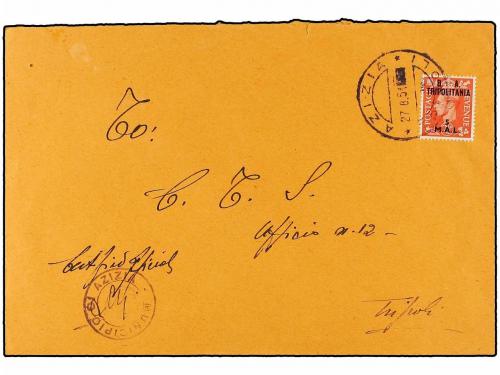 AZIZIA
27 8 51
B. A.
TRIPOLITANIA
5
M.A.L.
POSTAGE
REVENUE
To:
C. T. S.
Ufficio n. 12 -
Certified official
MUNICIPIO DI AZIZIA
Tripoli